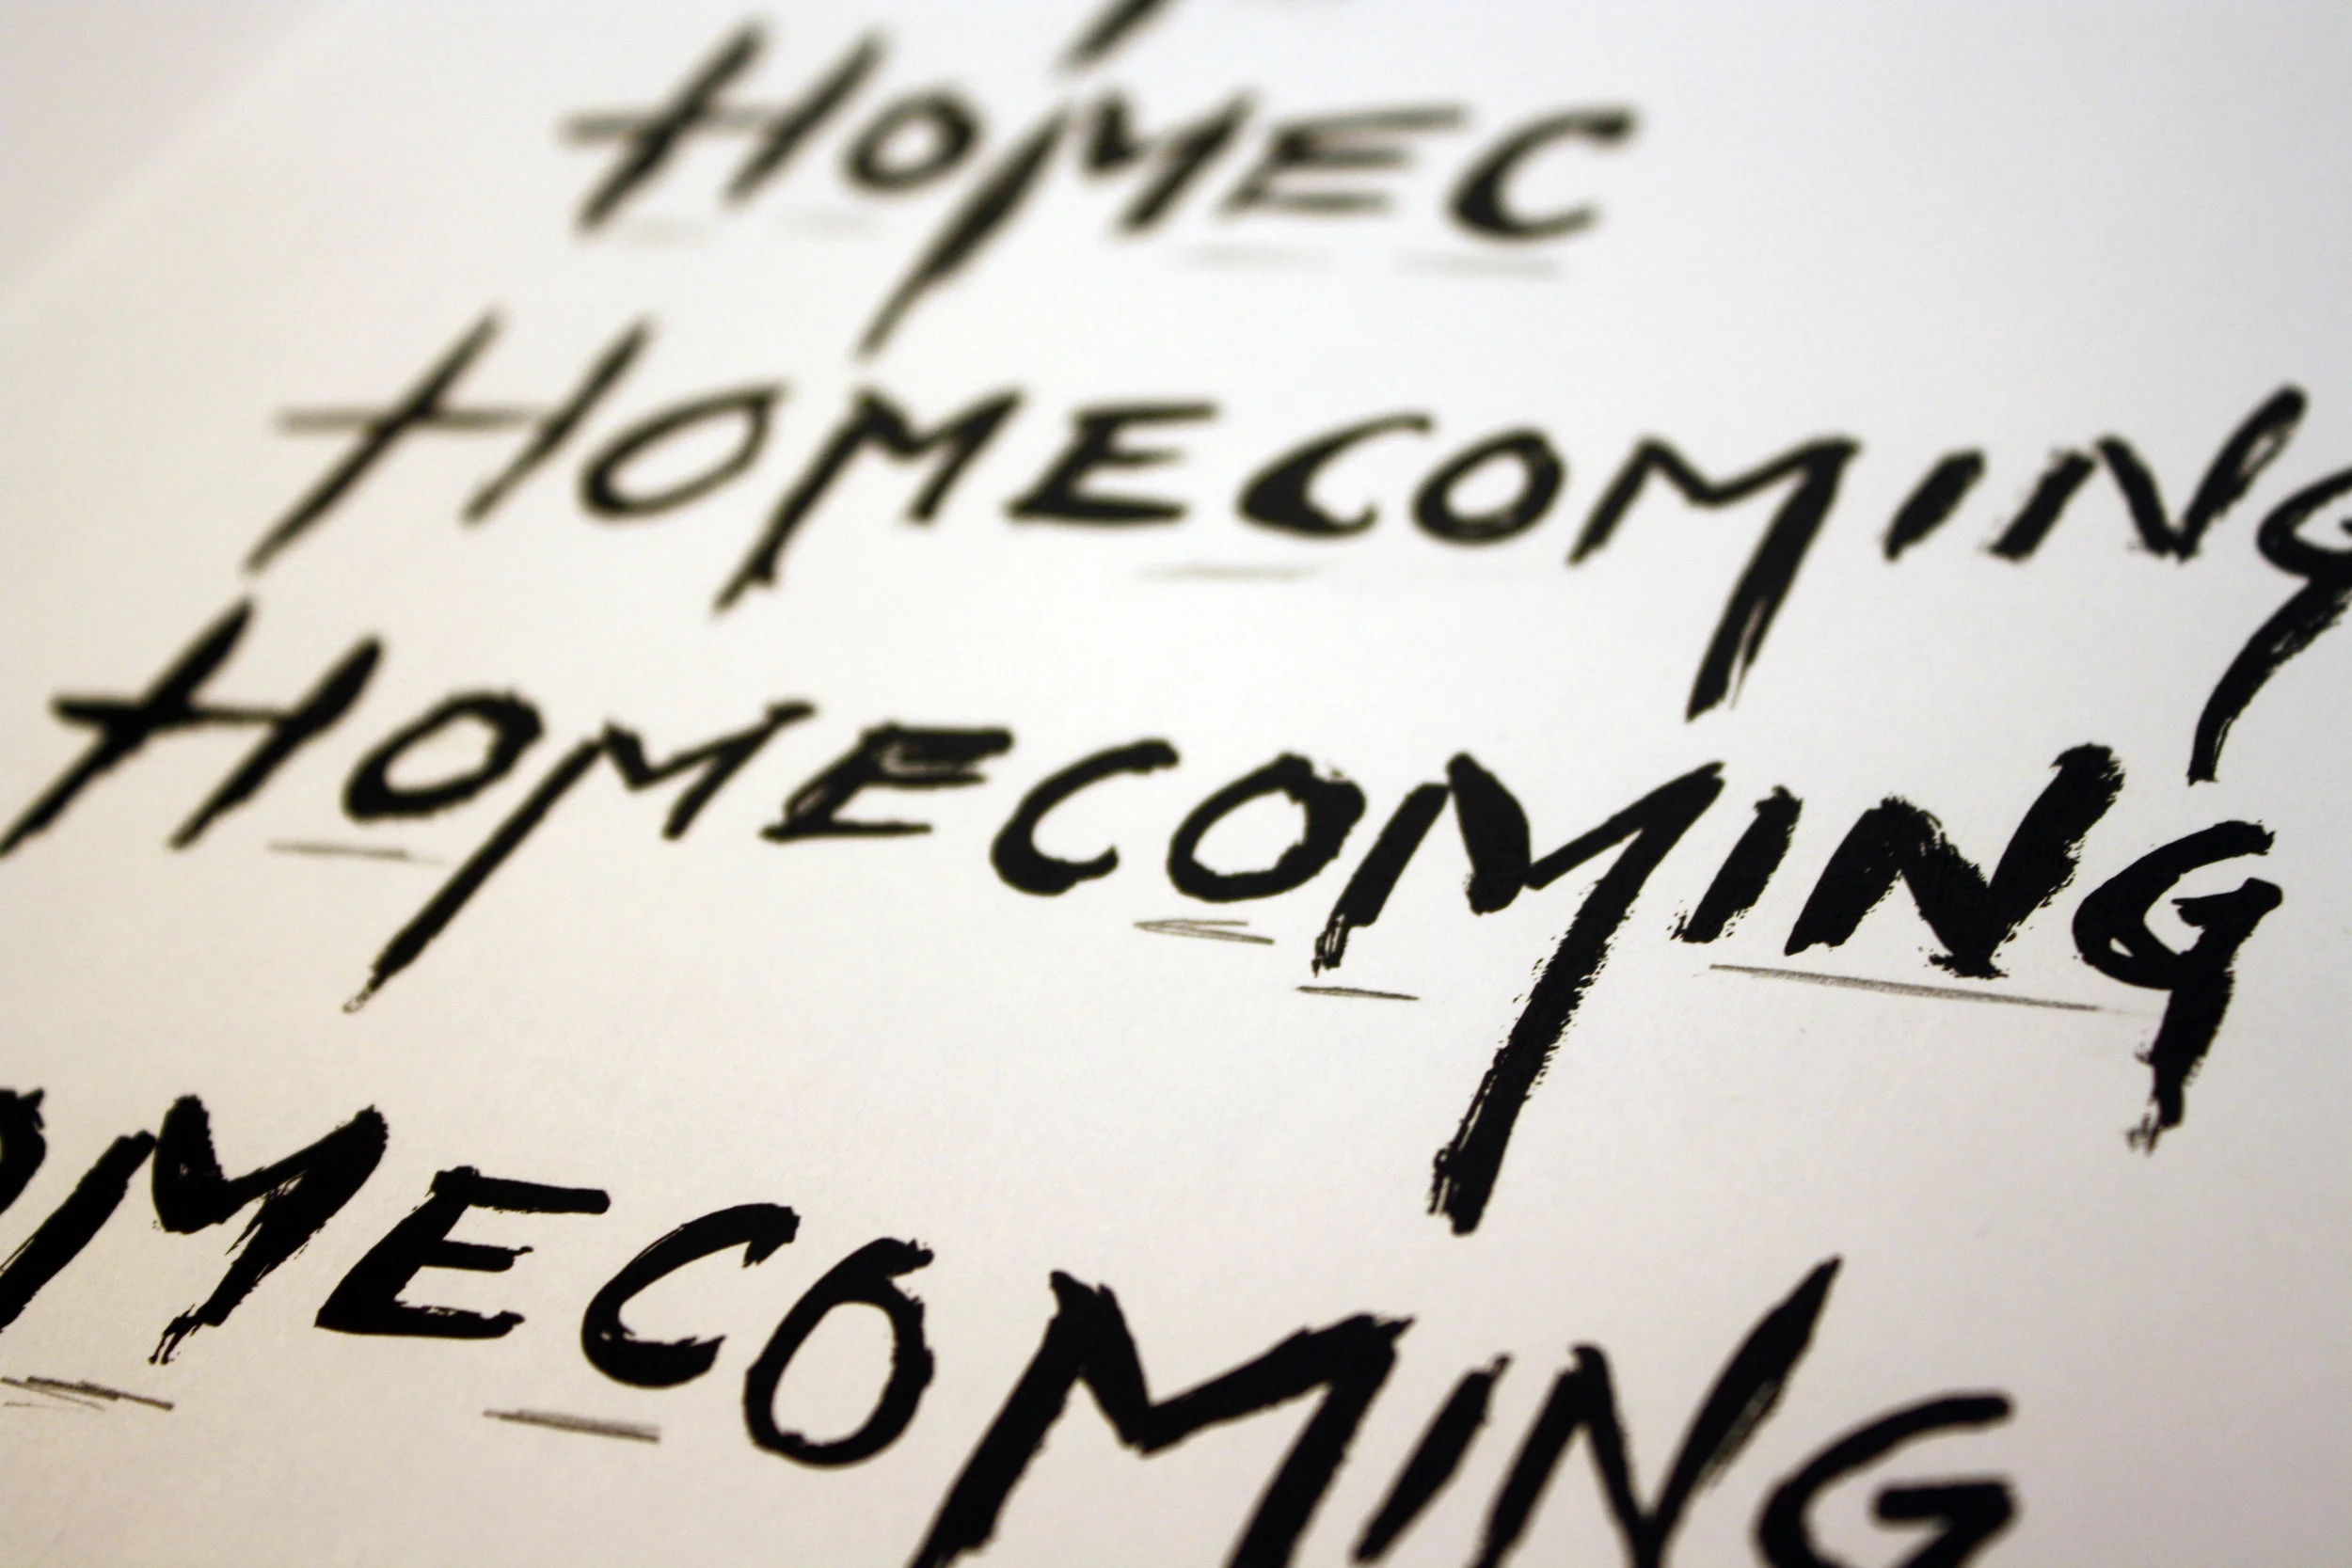 HOMEC
HOMECOMING
HOMECOMING
OMECOMING